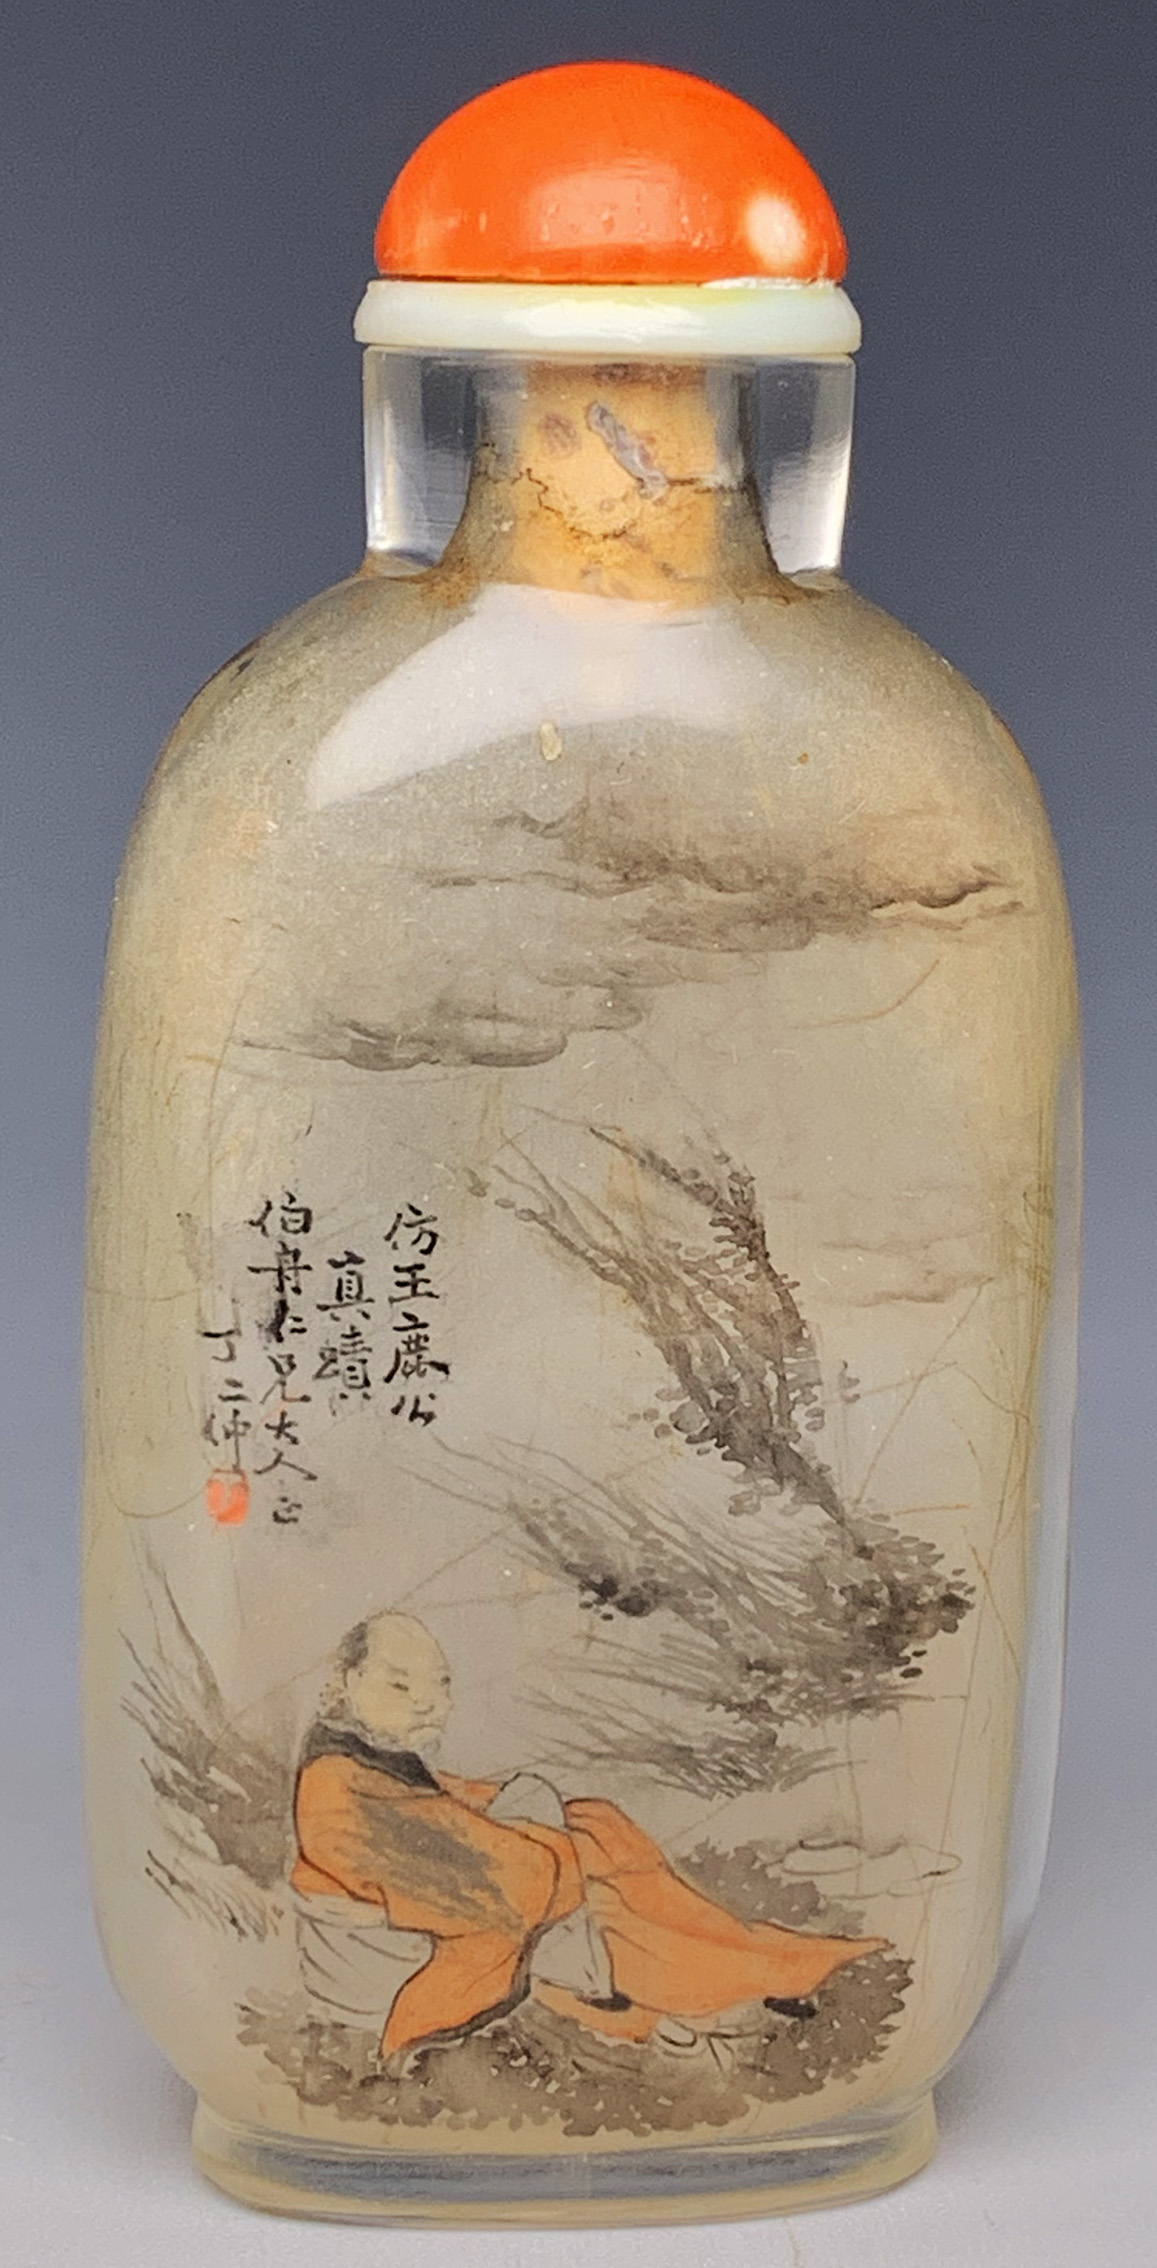 仿王鹿公
真蹟
伯舟仁兄大人正
丁二仲